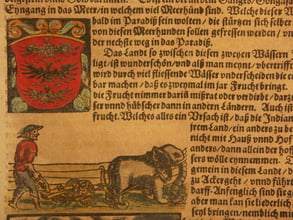 Eyngang in das Meer/in welchem vil Meerhünd sind. Welche dieser
bald im Paradiß sein wolten/ die stürtzen sich selber
von diesen Meerhunden sollen gefressen werden/
der nechste weg in das Paradiß.
Das Land so zwischen diesen zweyen Wässern
ligt/ist wunderschön/vnd alß man meynt/
wird durch viel fliessende Wässer vnderscheiden die
bar machen/ daß es zweymal im jar Frucht bringt.
die Frucht nimmer dariñ mißrat oder verdirbt/
ser vnnd hübscher dann in andern Ländern. Auch ist
frucht. Welches alles ein Vrsach ist/ daß die
rem Land/ein anders zu
nicht mit Hauß vnnd Hof
anders/dann allein der
sers wölle eynnemmen.
gemein in diesem Land/
zu Ackergeht/ vnnd
darff. Anfenglich sind sie
aber man kan sie liederlich
seyl bringen/